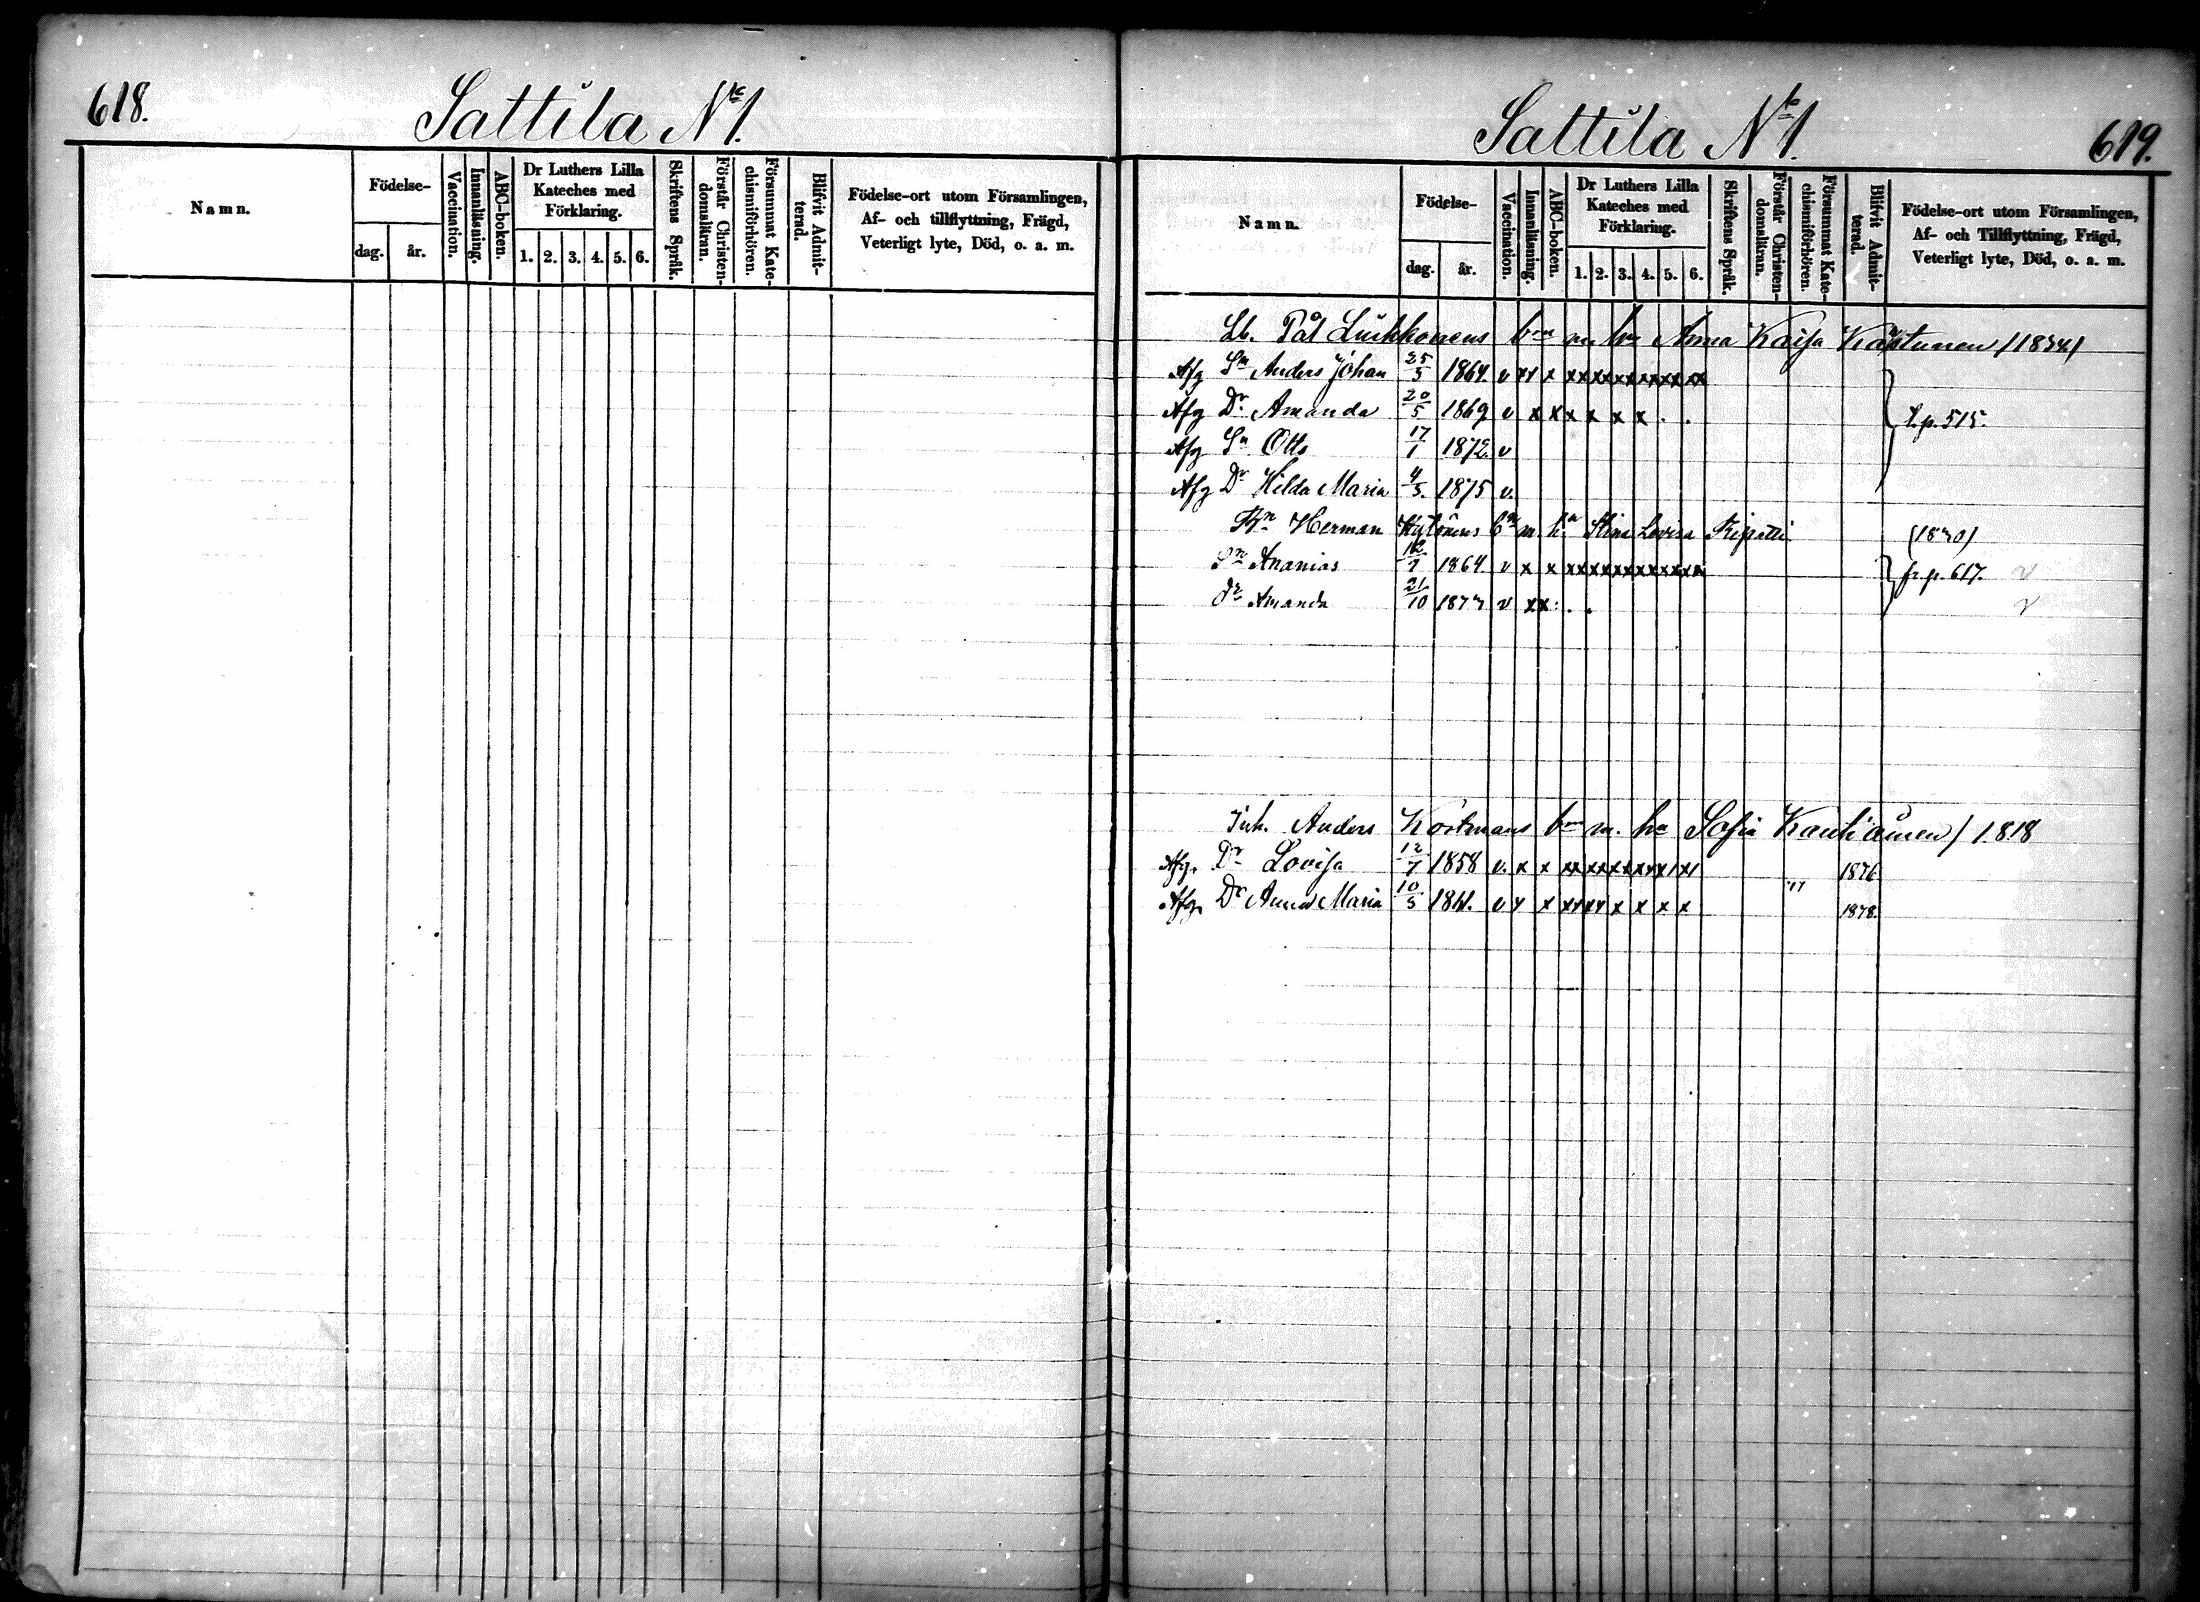 618.
Sattila No 1.
Namn.
Födelse-
dag. år.
Vaccination.
Innanläsning.
ABC-boken.
Dr Luthers Lilla
Kateches med
Förklaring.
1. 2. 3. 4. 5. 6.
Skriftens Språk.
Förstår Christen-
domsläran.
Försummat Kate-
chismiförhören.
Blifvit Admit-
terad.
Födelse-ort utom Församlingen,
Af- och tillflyttning, Frägd,
Veterligt lyte, Död, o. a. m.
Sattila No 1.
619.
Namn.
Födelse-
dag. år.
Vaccination.
Innanläsning.
ABC-boken.
Dr Luthers Lilla
Kateches med
Förklaring.
1. 2. 3. 4. 5. 6.
Skriftens Språk.
Förstår Christen-
domsläran.
Försummat Kate-
chismiförhören.
Blifvit Admit-
terad.
Födelse-ort utom Församlingen,
Af- och Tillflyttning, Frägd,
Veterligt lyte, Död, o. a. m.
Lb. Pål Luukkonens bn m hn Anna Kaisa (1834)
Afg Sn Anders Johan 25/5 1864. v xx x xxxxxxxxxxxx
Afg Dr Amanda 20/5 1869 v x x x x x x . . t.p. 515.
Afg Sn Otto 17/1 1872. v
Afg Dr Hilda Maria 4/5. 1875 v.
Herman bn m. hn Stina Lovisa Ripatti (1830)
Sn Ananias 12/7 1864 v x x xxxxxxxxxxxx fr. p. 617. v
dr Amanda 21/10 1877 v xx: . . v
Inh. Anders Kortmans bn m. hn Sofia / 1818
Afg. Dr Lovisa 12/7 1858 v. x x xx xxxxxxxxxx 1876
Afg. Dr Anna Maria 10/5 1861. v x x xxxx x x x x " 1878.